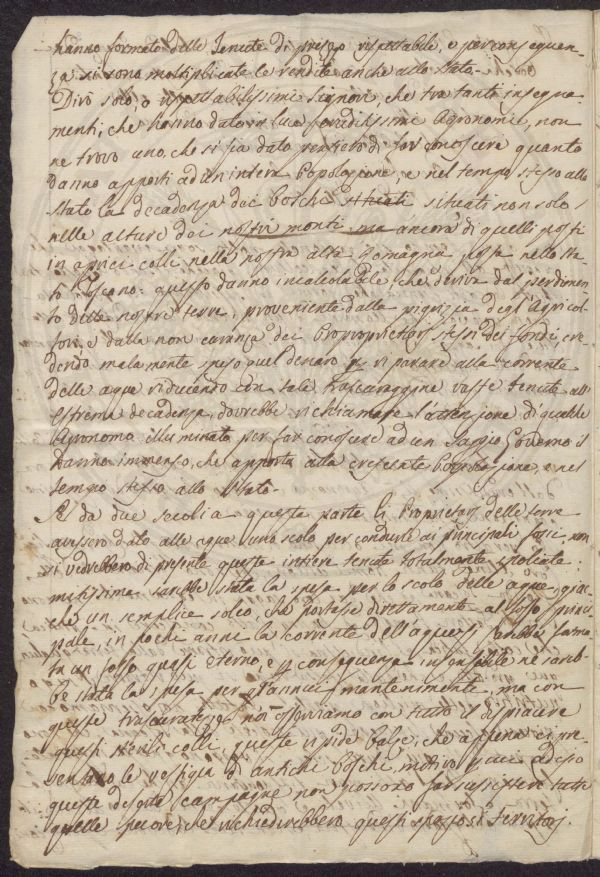 hanno formato delle Tenute di prezzo rispettabile, e per conseguen-
za si sono moltiplicate le rendite anche allo Stato.
Dirò solo, o rispettabilissimi Signori, che tra tanti insegna-
menti, che hanno dato in luce eruditissimi Agronomi, non
ne trovo uno, che si sia dato pensiero di far conoscere quanto
danno apporti ad un intera Popolazione, e nel tempo stesso allo
Stato la decadenza dei boschi situati non solo
nelle alture dei nostri monti ma ancora di quelli posti
in aprici colli nella nostra alta Romagna posta nello Sta-
to Toscano: questo danno incalcolabile, che deriva dal perdimen-
to delle nostre terre, proveniente dalla pigrizia degl'Agricol-
tori, e dalla non curanza dei Propriprietarj stessi dei fondi, cre-
dendo malamente speso quel denaro p riparare alla corrente
delle aque riducendo con tale trascuraggine vaste tenute all'
estrema decadenza, dovrebbe richiamare l'attenzione di qualche
Agronomo illuminato per far conoscere ad un Saggio Governo il
danno immenso, che apporta alla crescente Popolazione, e nel
tempo stesso allo Stato.
Se da due secoli a questa parte li Proprietarj delle terre
avessero dato alle aque uno scolo per condurle ai principali fossi, non
si vedrebbero di presente queste intiere tenute totalmente spoliate:
minissima sarebbe stata la spesa per lo scolo delle aque, giac-
che un semplice solco, che portasse direttamente al fosso princi-
pale, in pochi anni la corrente dell'aque si sarebbe formata
un fosso quasi eterno, e p conseguenza insensibile ne sareb-
be stata la spesa per l'annuo mantenimento, ma con
queste trascuratezze noi osserviamo con tutto il dispiacere
questi sterili colli, queste ripide balze, che appena ci pre-
sentano le vestigia di antichi boschi, motivo per cui adesso
queste desolate campagne non possono far sussistere tutte
quelle pecore, che richiedirebbero questi spaziosi territorj.